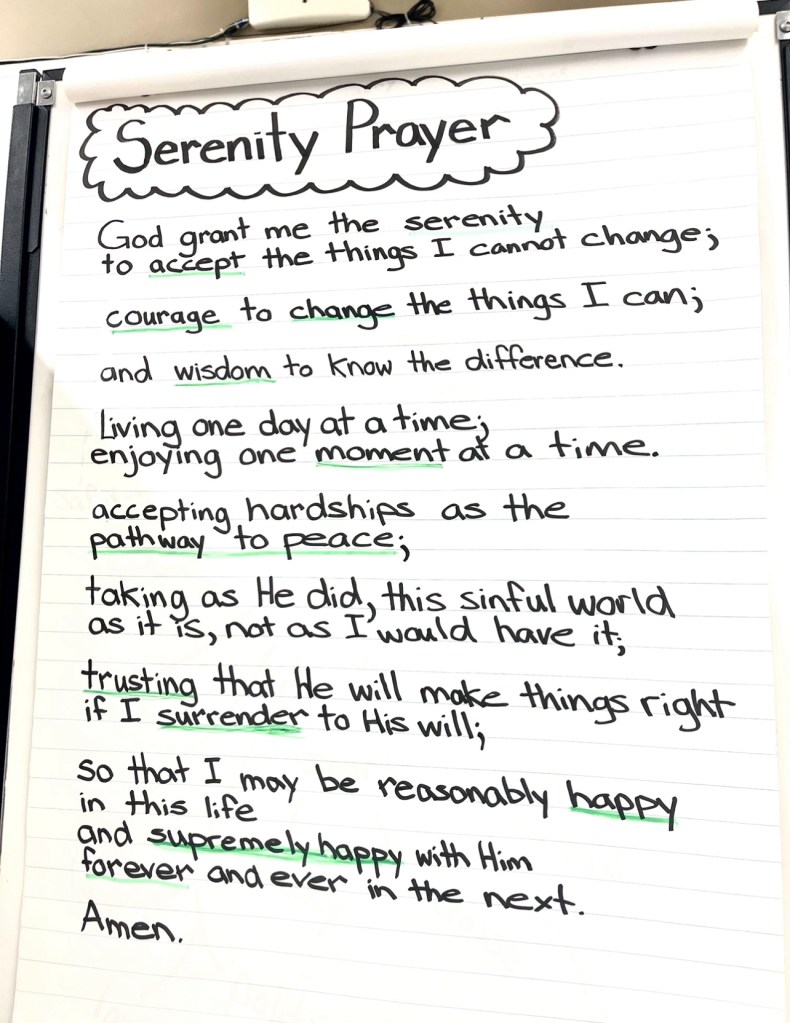 Serenity Prayer
God grant me the serenity
to accept the things I cannot change;
courage to change the things I can;
and wisdom to know the difference.
Living one day at a time;
enjoying one moment at a time.
accepting hardships as the
pathway to peace;
taking as He did, this sinful world
as it is, not as I would have it;
trusting that He will make things right
if I surrender to His will;
so that I may be reasonably happy
in this life
and supremely happy with Him
forever and ever in the next.
Amen.